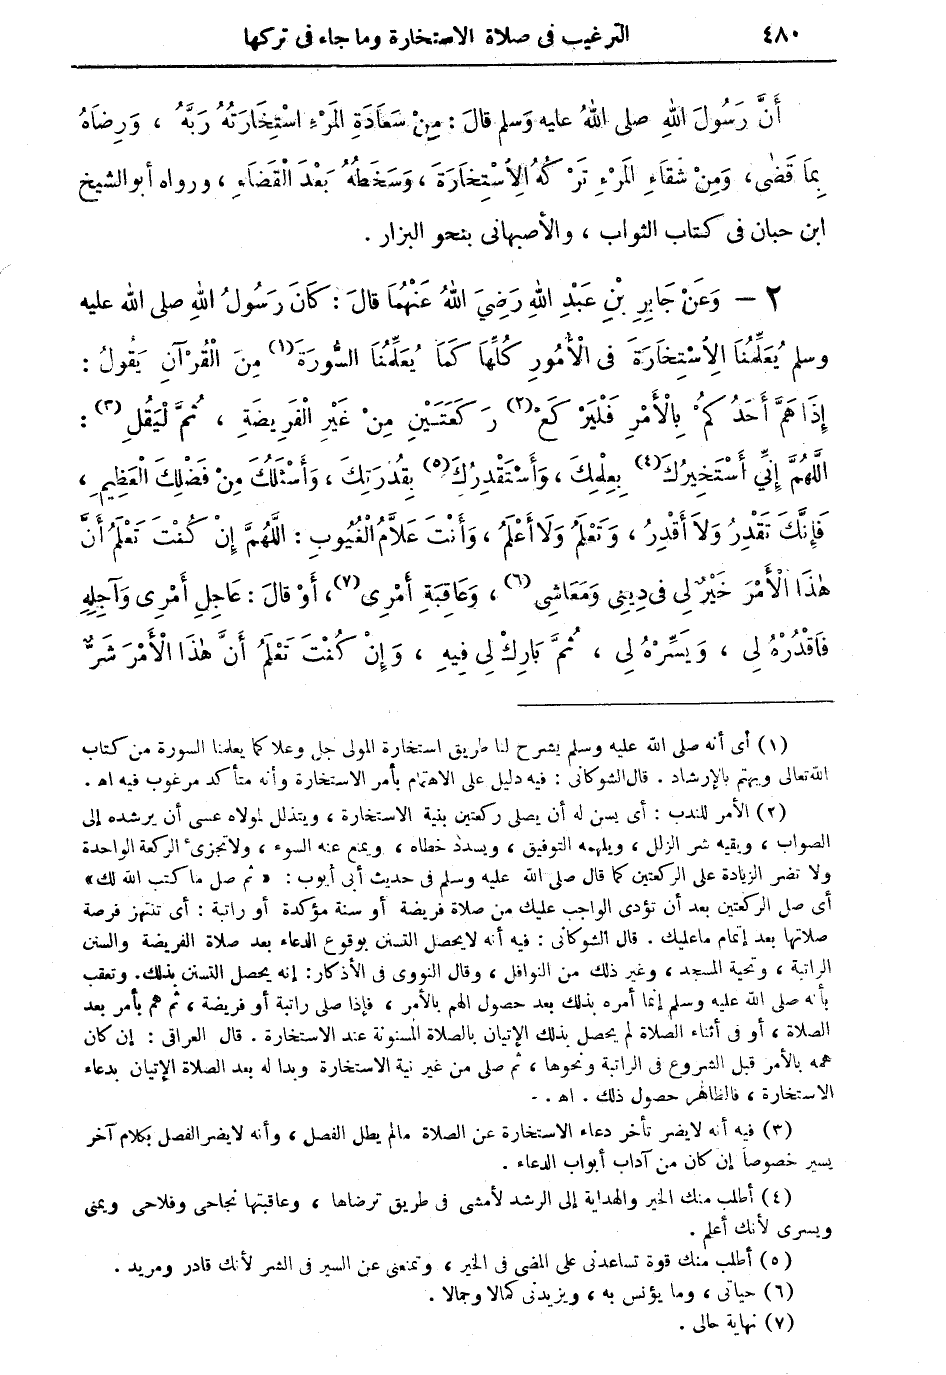 ٤٨٠ الترغيب فى صلاة الاستخارة وما جاء فى تركها
أَنَّ رَسُولَ اللهِ صلى اللهُ عليه وَسلم قالَ : مِنْ سَعَادَةِ المَرْءِ اسْتِخَارَتُهُ رَبَّهُ ، وَرِضَاهُ
بِمَا قَضَى، وَمِنْ شَقَاءِ المَرْءِ تَرْكُهُ الِاسْتِخَارَةَ ، وَسَخَطُهُ بَعْدَ الْقَضَاءِ ، ورواه أبوالشيخ
ابن حبان فى كتاب الثواب ، والأصبهانى بنحو البزار .
٢ – وَعَنْ جَابِرِ بْنِ عَبْدِ اللهِ رَضِيَ اللهُ عَنْهُمَا قالَ : كَانَ رَسُولُ اللهِ صلى الله عليه
وسلم يُعَلِّمُنَا الِاسْتِخَارَةَ فى الْأُمُورِ كُلِّهَا كَمَا يُعَلِّمُنَا السُّورَةَ (١) مِنَ الْقُرْآنِ يَقُولُ :
إِذَا هَمَّ أَحَدُكُمْ بِالْأَمْرِ فَلْيَرْكَعْ (٢) رَكْعَتَيْنِ مِنْ غَيْرِ الْفَرِيضَةِ ، ثُمَّ لْيَقُلِ (٣) :
اللَّهُمَّ إِنِّي أَسْتَخِيرُكَ (٤) بِعِلْمِكَ ، وَأَسْتَقْدِرُكَ (٥) بِقُدْرَتِكَ ، وَأَسْئَلُكَ مِنْ فَضْلِكَ الْعَظِيمِ ،
فَإِنَّكَ تَقْدِرُ وَلاَ أَقْدِرُ ، وَتَعْلَمُ وَلَا أَعْلَمُ ، وَأَنْتَ عَلاَّمُ الْغُيُوبِ : اللَّهُمَّ إِنْ كُنْتَ تَعْلَمُ أَنَّ
هٰذَا الْأَمْرَ خَيْرٌ لِى فى دِينِى وَمَعَاشِى (٦) ، وَعَاقِبَةِ أَمْرِى (٧)، أَوْ قالَ : عَاجِلِ أَمْرِى وَآجِلِهِ
فَاقْدُرْهُ لِى ، وَيَسِّرْهُ لِى ، ثُمَّ بَارِكْ لِى فِيهِ ، وَإِنْ كُنْتَ تَعْلَمُ أَنَّ هٰذَا الْأَمْرَ شَرٌّ
(١) أى أنه صلى الله عليه وسلم يشرح لنا طريق استخارة المولى جل وعلا كما يعلمنا السورة من كتاب
الله تعالى ويهتم بالإرشاد . قال الشوكانى : فيه دليل على الاهتمام بأمر الاستخارة وأنه متأكد مرغوب فيه اهـ .
(٢) الأمر للندب : أى يسن له أن يصلى ركعتين بنية الاستخارة ، ويتذلل لمولاه عسى أن يرشده إلى
الصواب ، ويقيه شر الزلل ، ويلهمه التوفيق ، ويسدد خطاه ، ويمنع عنه السوء ، ولاتجزئ الركعة الواحدة
ولا تضر الزيادة على الركعتين كما قال صلى الله عليه وسلم فى حديث أبى أيوب : « ثم صل ما كتب الله لك»
أى صل الركعتين بعد أن تؤدى الواجب عليك من صلاة فريضة أو سنة مؤكدة أو راتبة : أى تنتهز فرصة
صلاتها بعد إتمام ماعليك . قال الشوكانى : فيه أنه لايحصل التسنن بوقوع الدعاء بعد صلاة الفريضة والسنن
الراتبة ، وتحية المسجد ، وغير ذلك من النوافل ، وقال النووى فى الأذكار: إنه يحصل التسنن بذلك. وتعقب
بأنه صلى الله عليه وسلم إنما أمره بذلك بعد حصول الهم بالأمر ، فإذا صلى راتبة أو فريضة ، ثم هم بأمر بعد
الصلاة ، أو فى أثناء الصلاة لم يحصل بذلك الإتيان بالصلاة المسنونة عند الاستخارة . قال العراقى : إن كان
همه بالأمر قبل الشروع فى الراتبة ونحوها ، ثم صلى من غير نية الاستخارة وبدا له بعد الصلاة الإتيان بدعاء
الاستخارة ، فالظاهر حصول ذلك . اهـ . -
(٣) فيه أنه لايضر تأخر دعاء الاستخارة عن الصلاة مالم يطل الفصل ، وأنه لايضر الفصل بكلام آخر
يسير خصوصاً إن كان من آداب أبواب الدعاء .
(٤) أطلب منك الخير والهداية إلى الرشد لأمشى فى طريق ترضاها ، وعاقبتها نجاحى وفلاحى ويمنى
ويسرى لأنك أعلم .
(٥) أطلب منك قوة تساعدنى على المضى فى الخير ، وتمنعنى عن السير فى الشر لأنك قادر ومريد .
(٦) حياتى ، وما يؤنس به ، ويزيدنى كمالا وجمالا .
(٧) نهاية حالى .